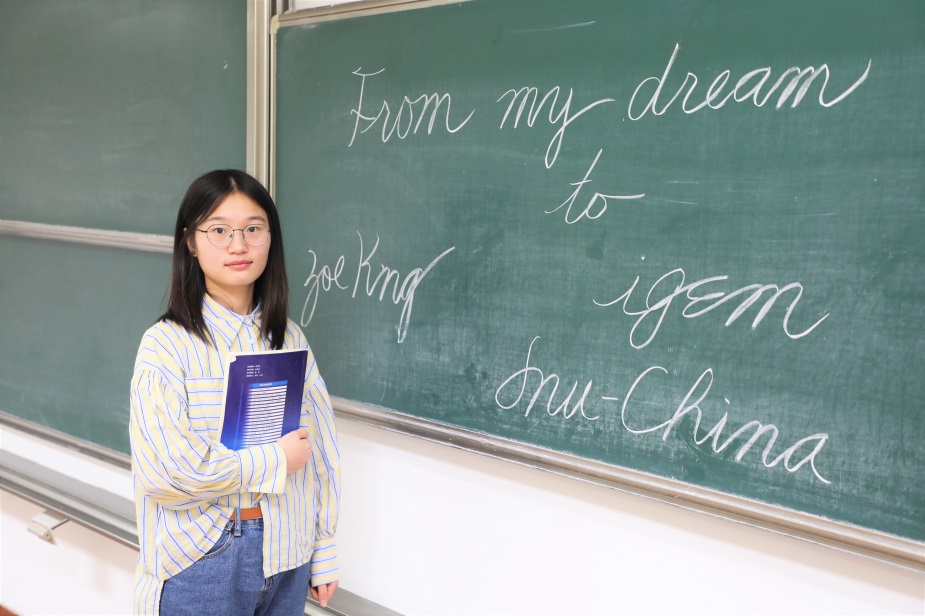 From my dream
to
zoe Kng
igem
Snu-China